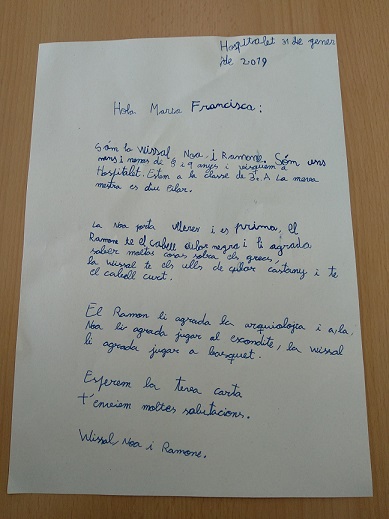 Hospitalet 31 de gener
de 2019
Hola Maria Francisca:
Sóm la Wissal, Noa, i Ramone. Sóm uns
nens i nenes de 8 i 9 anys i visquem a
Hospitalet. Estem a la classe de 3r. A La meva
mestra es diu Pilar.
La Noa porta ulleres i es prima, El
Ramone te el cabell color negre i li agrada
saber moltes coses sobre els grecs,
la Wissal te els ulls de color castany i te
el cabell curt.
El Ramon li agrada la arquiologica i a la
Noa li agrada jugar al escondite, la Wissal
li agrada jugar a basquet.
Esperem la teva carta
t'enviem moltes salutacions.
Wissal Noa i Ramone.